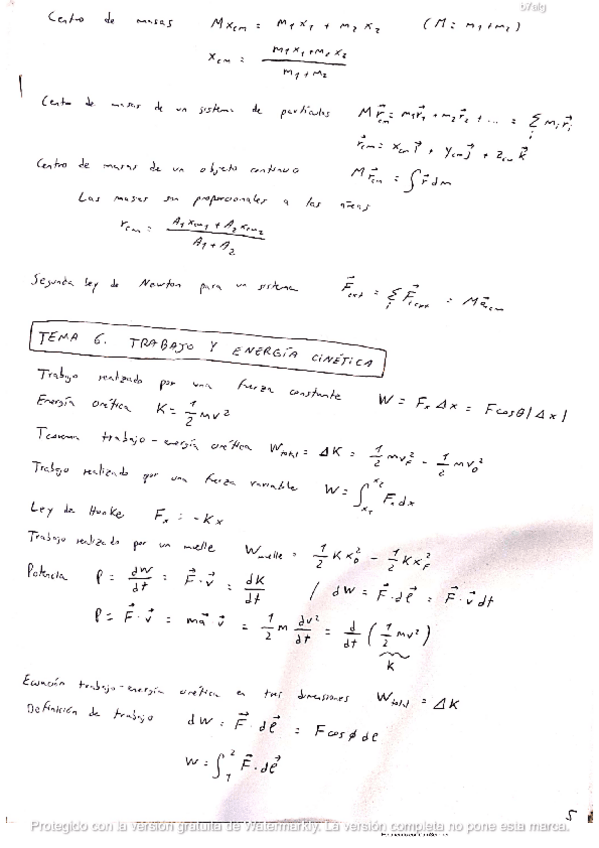 b7elg
Centro de masas Mx_cm = m₁x₁ + m₂x₂ (M = m₁+m₂)
x_cm = (m₁x₁+m₂x₂)/(m₁+m₂)
Centro de masas de un sistema de partículas M r⃗_cm = m₁r⃗₁ + m₂r⃗₂ + ... = Σ_i m_i r⃗_i
r⃗_cm = x_cm i⃗ + y_cm j⃗ + z_cm k⃗
Centro de masas de un objeto continuo M r⃗_cm = ∫ r⃗ dm
Las masas son proporcionales a las áreas
r_cm = (A₁x_cm1 + A₂x_cm2)/(A₁+A₂)
Segunda ley de Newton para un sistema F⃗_ext = Σ_i F⃗_i ext = M a⃗_cm
TEMA 6. TRABAJO Y ENERGÍA CINÉTICA
Trabajo realizado por una fuerza constante W = F_x Δx = F cosθ |Δx|
Energía cinética K = 1/2 mv²
Teorema trabajo-energía cinética W_total = ΔK = 1/2 mv_F² - 1/2 mv_0²
Trabajo realizado por una fuerza variable W = ∫ F_x dx
Ley de Hooke F_x = -Kx
Trabajo realizado por un muelle W_muelle = 1/2 Kx_0² - 1/2 Kx_F²
Potencia P = dW/dt = F⃗·v⃗ = dK/dt / dW = F⃗·dℓ⃗ = F⃗·v⃗ dt
P = F⃗·v⃗ = ma⃗ v⃗ = 1/2 m dv²/dt = d/dt (1/2 mv²)
K
Ecuación trabajo-energía cinética en tres dimensiones W_total = ΔK
Definición de trabajo dW = F⃗·dℓ⃗ = F cosϕ dℓ
W = ∫₁² F⃗·dℓ⃗
5
Protegido con la versión gratuita de Watermarkly. La versión completa no pone esta marca.